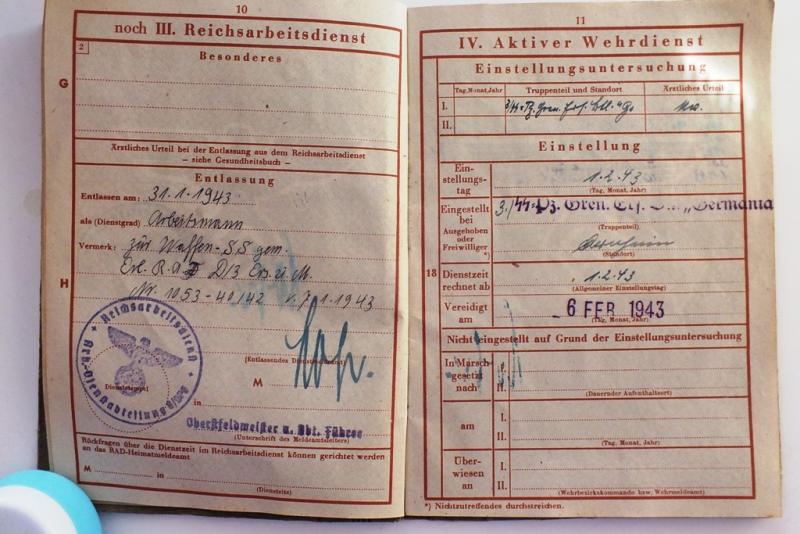 10
noch III. Reichsarbeitsdienst
2
Besonderes
G
Ärztliches Urteil bei der Entlassung aus dem Reichsarbeitsdienst
– siehe Gesundheitsbuch –
Entlassung
Entlassen am: 31.1.1943
als (Dienstgrad) Arbeitsmann
Vermerk: zur Waffen-SS gem.
Erl. R.A.D. D/3 u. M.
H
Nr. 1053-40/42 v. 7.1.1943
Reichsarbeitsdienst
(Entlassendes Dienst
Dienststempel
M
Oberstfeldmeister u. Abt. Führer
(Unterschrift des Meldeamtsleiters)
Rückfragen über die Dienstzeit im Reichsarbeitsdienst können gerichtet werden
an das RAD-Heimatmeldeamt
M in
(Dienstsitz)
11
IV. Aktiver Wehrdienst
Einstellungsuntersuchung
Tag, Monat, Jahr Truppenteil und Standort Ärztliches Urteil
I. Gren.
II.
Einstellung
Ein-
stellungs-
tag 1.2.43
(Tag, Monat, Jahr)
Eingestellt
bei 3./SS-Pz. Gren. "Germania
Ausgehoben (Truppenteil)
oder
Freiwilliger *) Arnheim
(Standort)
18 Dienstzeit
rechnet ab 1.2.43
(Allgemeiner Einstellungstag)
Vereidigt
am - 6 FEB 1943
(Tag, Monat, Jahr)
Nicht eingestellt auf Grund der Einstellungsuntersuchung
In Marsch I.
gesetzt
nach II.
(Dauernder Aufenthaltsort)
I.
am
II.
(Tag, Monat, Jahr)
Über-
wiesen I.
an II.
(Wehrbezirkskommando bzw. Wehrmeldeamt)
*) Nichtzutreffendes durchstreichen.